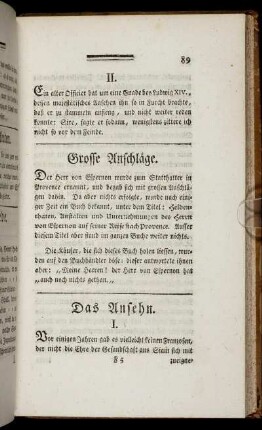 89
II.
Ein alter Officier bat um eine Gnade bey Ludwig XIV.,
dessen majestätisches Ansehen ihn so in Furcht brachte,
daß er zu stammeln anfieng, und nicht weiter reden
konnte: Sire, sagte er sodann, wenigstens zittere ich
nicht so vor dem Feinde.
Grosse Anschläge.
Der Herr von Epernon wurde zum Statthalter in
Provence ernennt, und begab sich mit grossen Anschlä-
gen dahin. Da aber nichts erfolgte, wurde nach eini-
ger Zeit ein Buch bekannt, unter dem Titel: Helden-
thaten, Anstalten und Unternehmungen des Herrn
von Epernon auf seiner Reise nach Provence. Ausser
diesem Titel aber stund im ganzen Buche weiter nichts.
Die Käufer, die sich dieses Buch holen liessen, wur-
den auf den Buchhändler böse; dieser antwortete ihnen
aber: „Meine Herren! der Herr von Epernon hat
„auch noch nichts gethan.„
Das Ansehn.
I.
Vor einigen Jahren gab es vielleicht keinen Franzosen,
der nicht die Ehre der Gesandschaft zum Streit sich mit
F 5
zueigne-